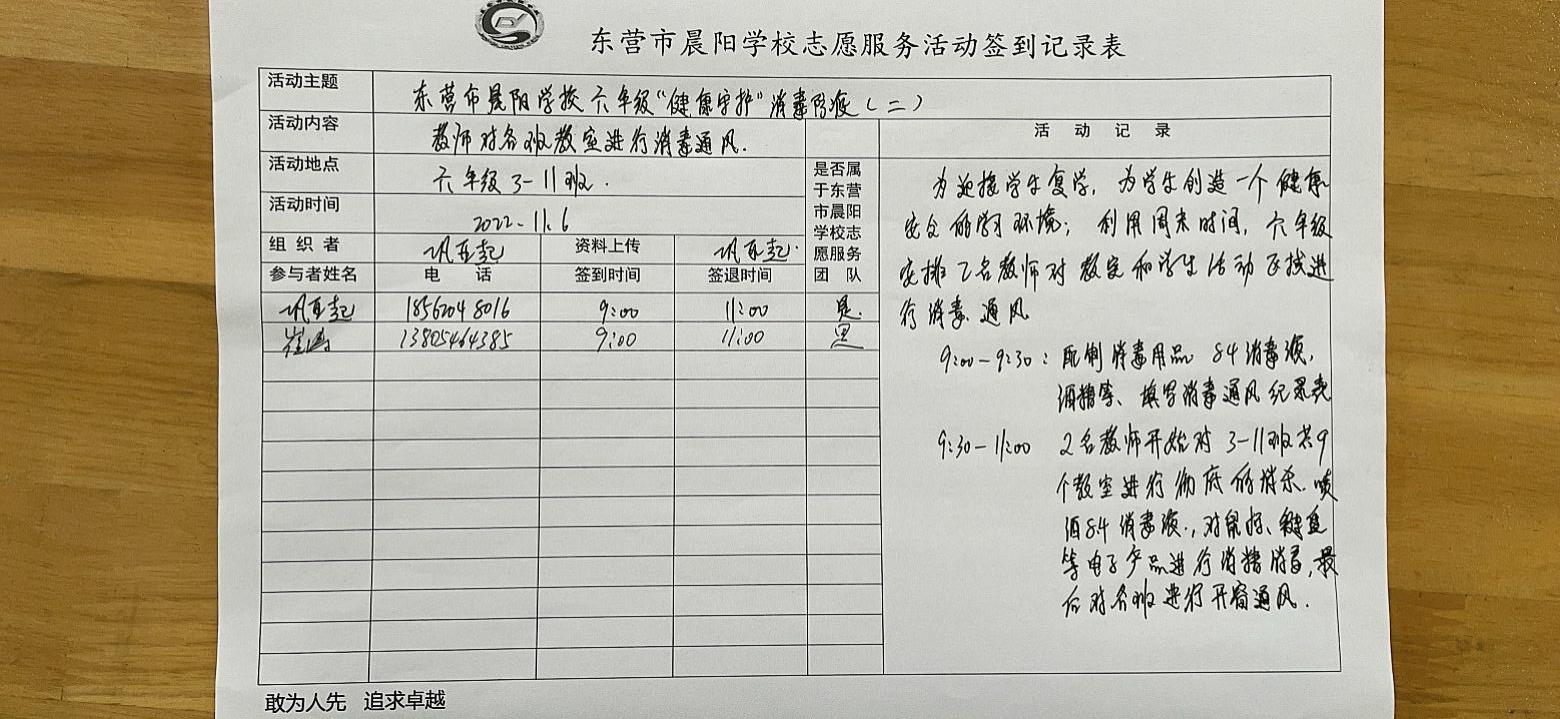 东营市晨阳学校志愿服务活动签到记录表
活动主题 东营市晨阳学校六年级“健康守护”消毒防疫(二)
活动内容 教师对各班教室进行消毒通风.
活动地点 六年级3-11班.
活动时间 2022.11.6
组织者 巩百起 资料上传 巩百起
参与者姓名 电话 签到时间 签退时间
是否属
于东营
市晨阳
学校志
愿服务
团队
18562048016 9:00 11:00 是.
13805464385 9:00 11:00 是
活动记录
为迎接学生复学,为学生创造一个健康
安全的学习环境;利用周末时间,六年级
安排2名教师对教室和学生活动区域进
行消毒通风
9:00-9:30:配制消毒用品 84消毒液,
酒精等、填写消毒通风纪录表
9:30-11:00 2名教师开始对3-11班共9
个教室进行彻底的消杀.喷
洒84消毒液.,对鼠标、键盘
等电子产品进行酒精消毒,最
后对各班进行开窗通风.
敢为人先 追求卓越